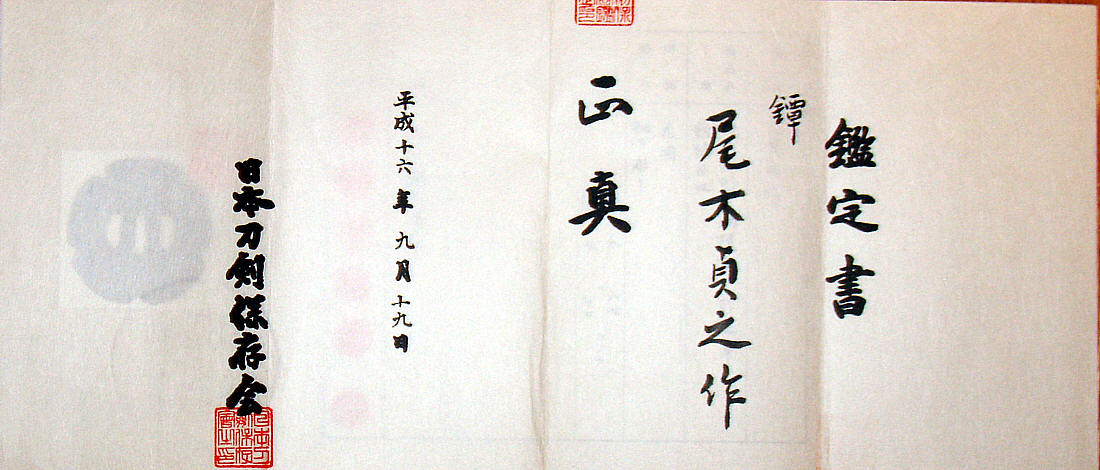 鑑定書
鐔
尾木貞之作
正真
平成十六年九月十九日
日本刀剣保存会